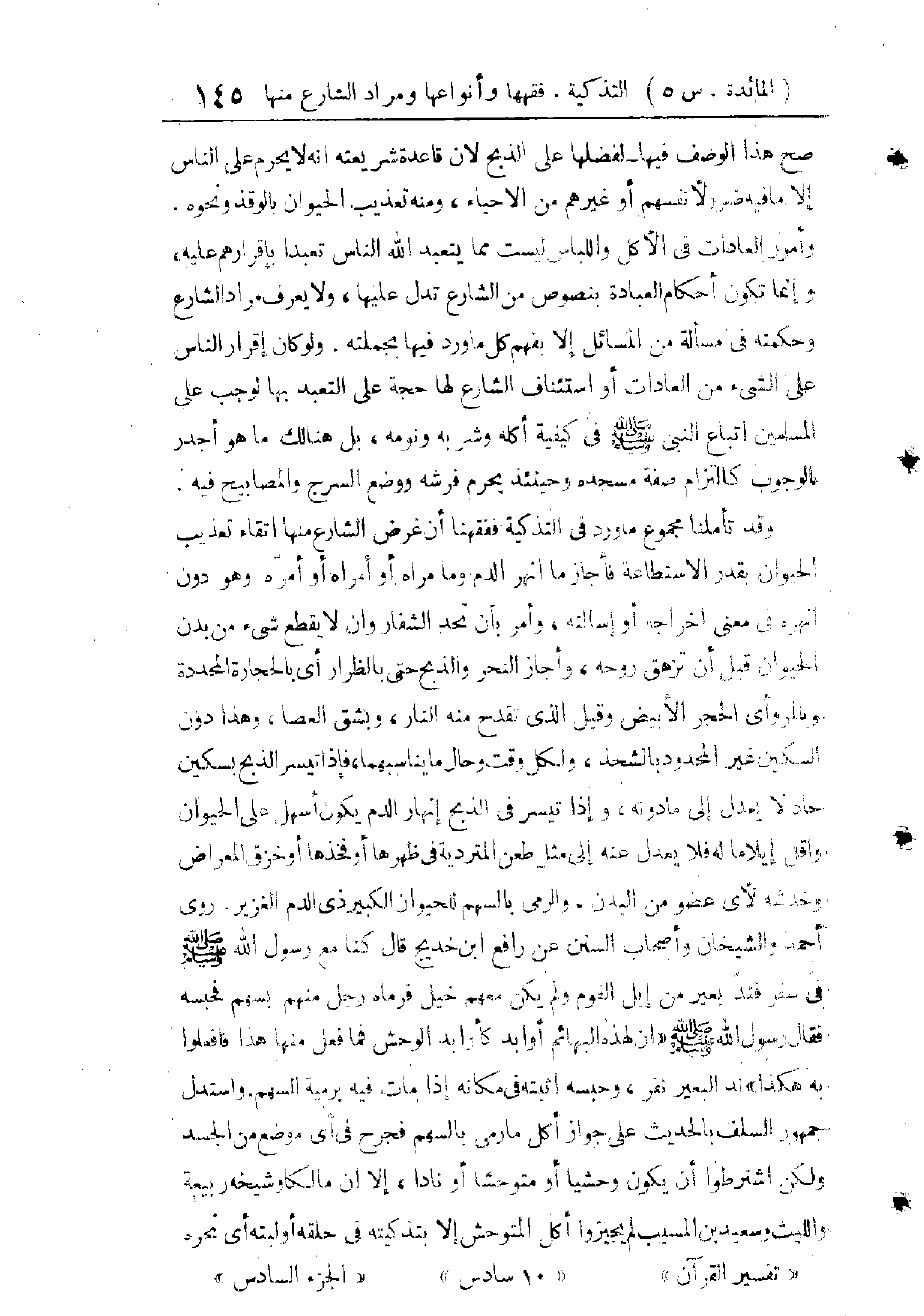 ( المائدة . س ٥ ) التذكية . فقهها وأنواعها ومراد الشارع منها ١٤٥
صح هذا الوصف فيها ـ لفضلها على الذبح لان قاعدة شريعته انه لا يحرم على الناس
إلا ما فيه ضرر لأنفسهم أو غيرهم من الاحياء ، ومنه تعذيب الحيوان بالوقذ ونحوه .
وأمور العادات فى الأكل واللباس ليست مما يتعبد الله الناس تعبدا بإقرارهم عليه ،
وإنما تكون أحكام العبادة بنصوص من الشارع تدل عليها ، ولا يعرف مراد الشارع
وحكمته فى مسألة من المسائل إلا بفهم كل ماورد فيها بجملته . ولو كان إقرار الناس
على الشىء من العادات أو استئناف الشارع لها حجة على التعبد بها لوجب على
المسلمين اتباع النبى ﷺ فى كيفية أكله وشربه ونومه ، بل هنالك ما هو أجدر
بالوجوب كالتزام صفة مسجده وحينئذ يحرم فرشه ووضع السرج والمصابيح فيه .
وقد تأملنا مجموع ماورد فى التذكية ففقهنا أن غرض الشارع منها اتقاء تعذيب
الحيوان بقدر الاستطاعة فأجاز ما انهر الدم وما مراه أو أمراه أو أمرّه وهو دون
انهره فى معنى اخراجه أو إسالته ، وأمر بأن تحد الشفار وان لا يقطع شىء من بدن
الحيوان قبل أن تزهق روحه ، وأجاز النحر والذبح حتى بالظرار أى بالحجارة المحددة
وبالمرو أى الحجر الأبيض وقيل الذى تقدح منه النار ، وبشق العصا ، وهذا دون
السكين غير المحدود بالشحذ ، ولكل وقت وحال ما يناسبهما ، فإذا تيسر الذبح بسكين
حاد لا يعدل إلى مادونه ، وإذا تيسر فى الذبح إنهار الدم يكون أسهل على الحيوان
واقل إيلاما له فلا يعدل عنه إلى مثل طعن المتردية فى ظهرها أو فخذها أو خزق المعراض
وخدشه لأى عضو من البدن . والرمى بالسهم للحيوان الكبير ذى الدم الغزير . روى
أحمد والشيخان وأصحاب السنن عن رافع ابن خديج قال كنا مع رسول الله ﷺ
فى سفر فندّ بعير من إبل القوم ولم يكن معهم خيل فرماه رجل منهم بسهم فحبسه
فقال رسول الله ﷺ «ان لهذه البهائم أوابد كأوابد الوحش فما فعل منها هذا فافعلوا
به هكذا» ند البعير نفر ، وحبسه اثبته فى مكانه إذا مات فيه برمية السهم. واستدل
جمهور السلف بالحديث على جواز أكل مارمى بالسهم فجرح فى أى موضع من الجسد
ولكن اشترطوا أن يكون وحشيا أو متوحشا أو نادا ، إلا ان مالكا وشيخه ربيعة
والليث وسعيد بن المسيب لم يجيزوا أكل المتوحش إلا بتذكيته فى حلقه أو لبته أى نحره
« تفسير القرآن » « ١٠ سادس » « الجزء السادس »